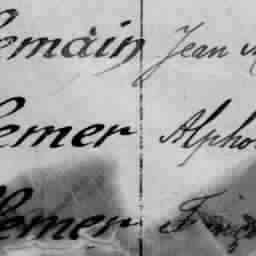 Lemain Jean
Lemer Alpho
Lemer